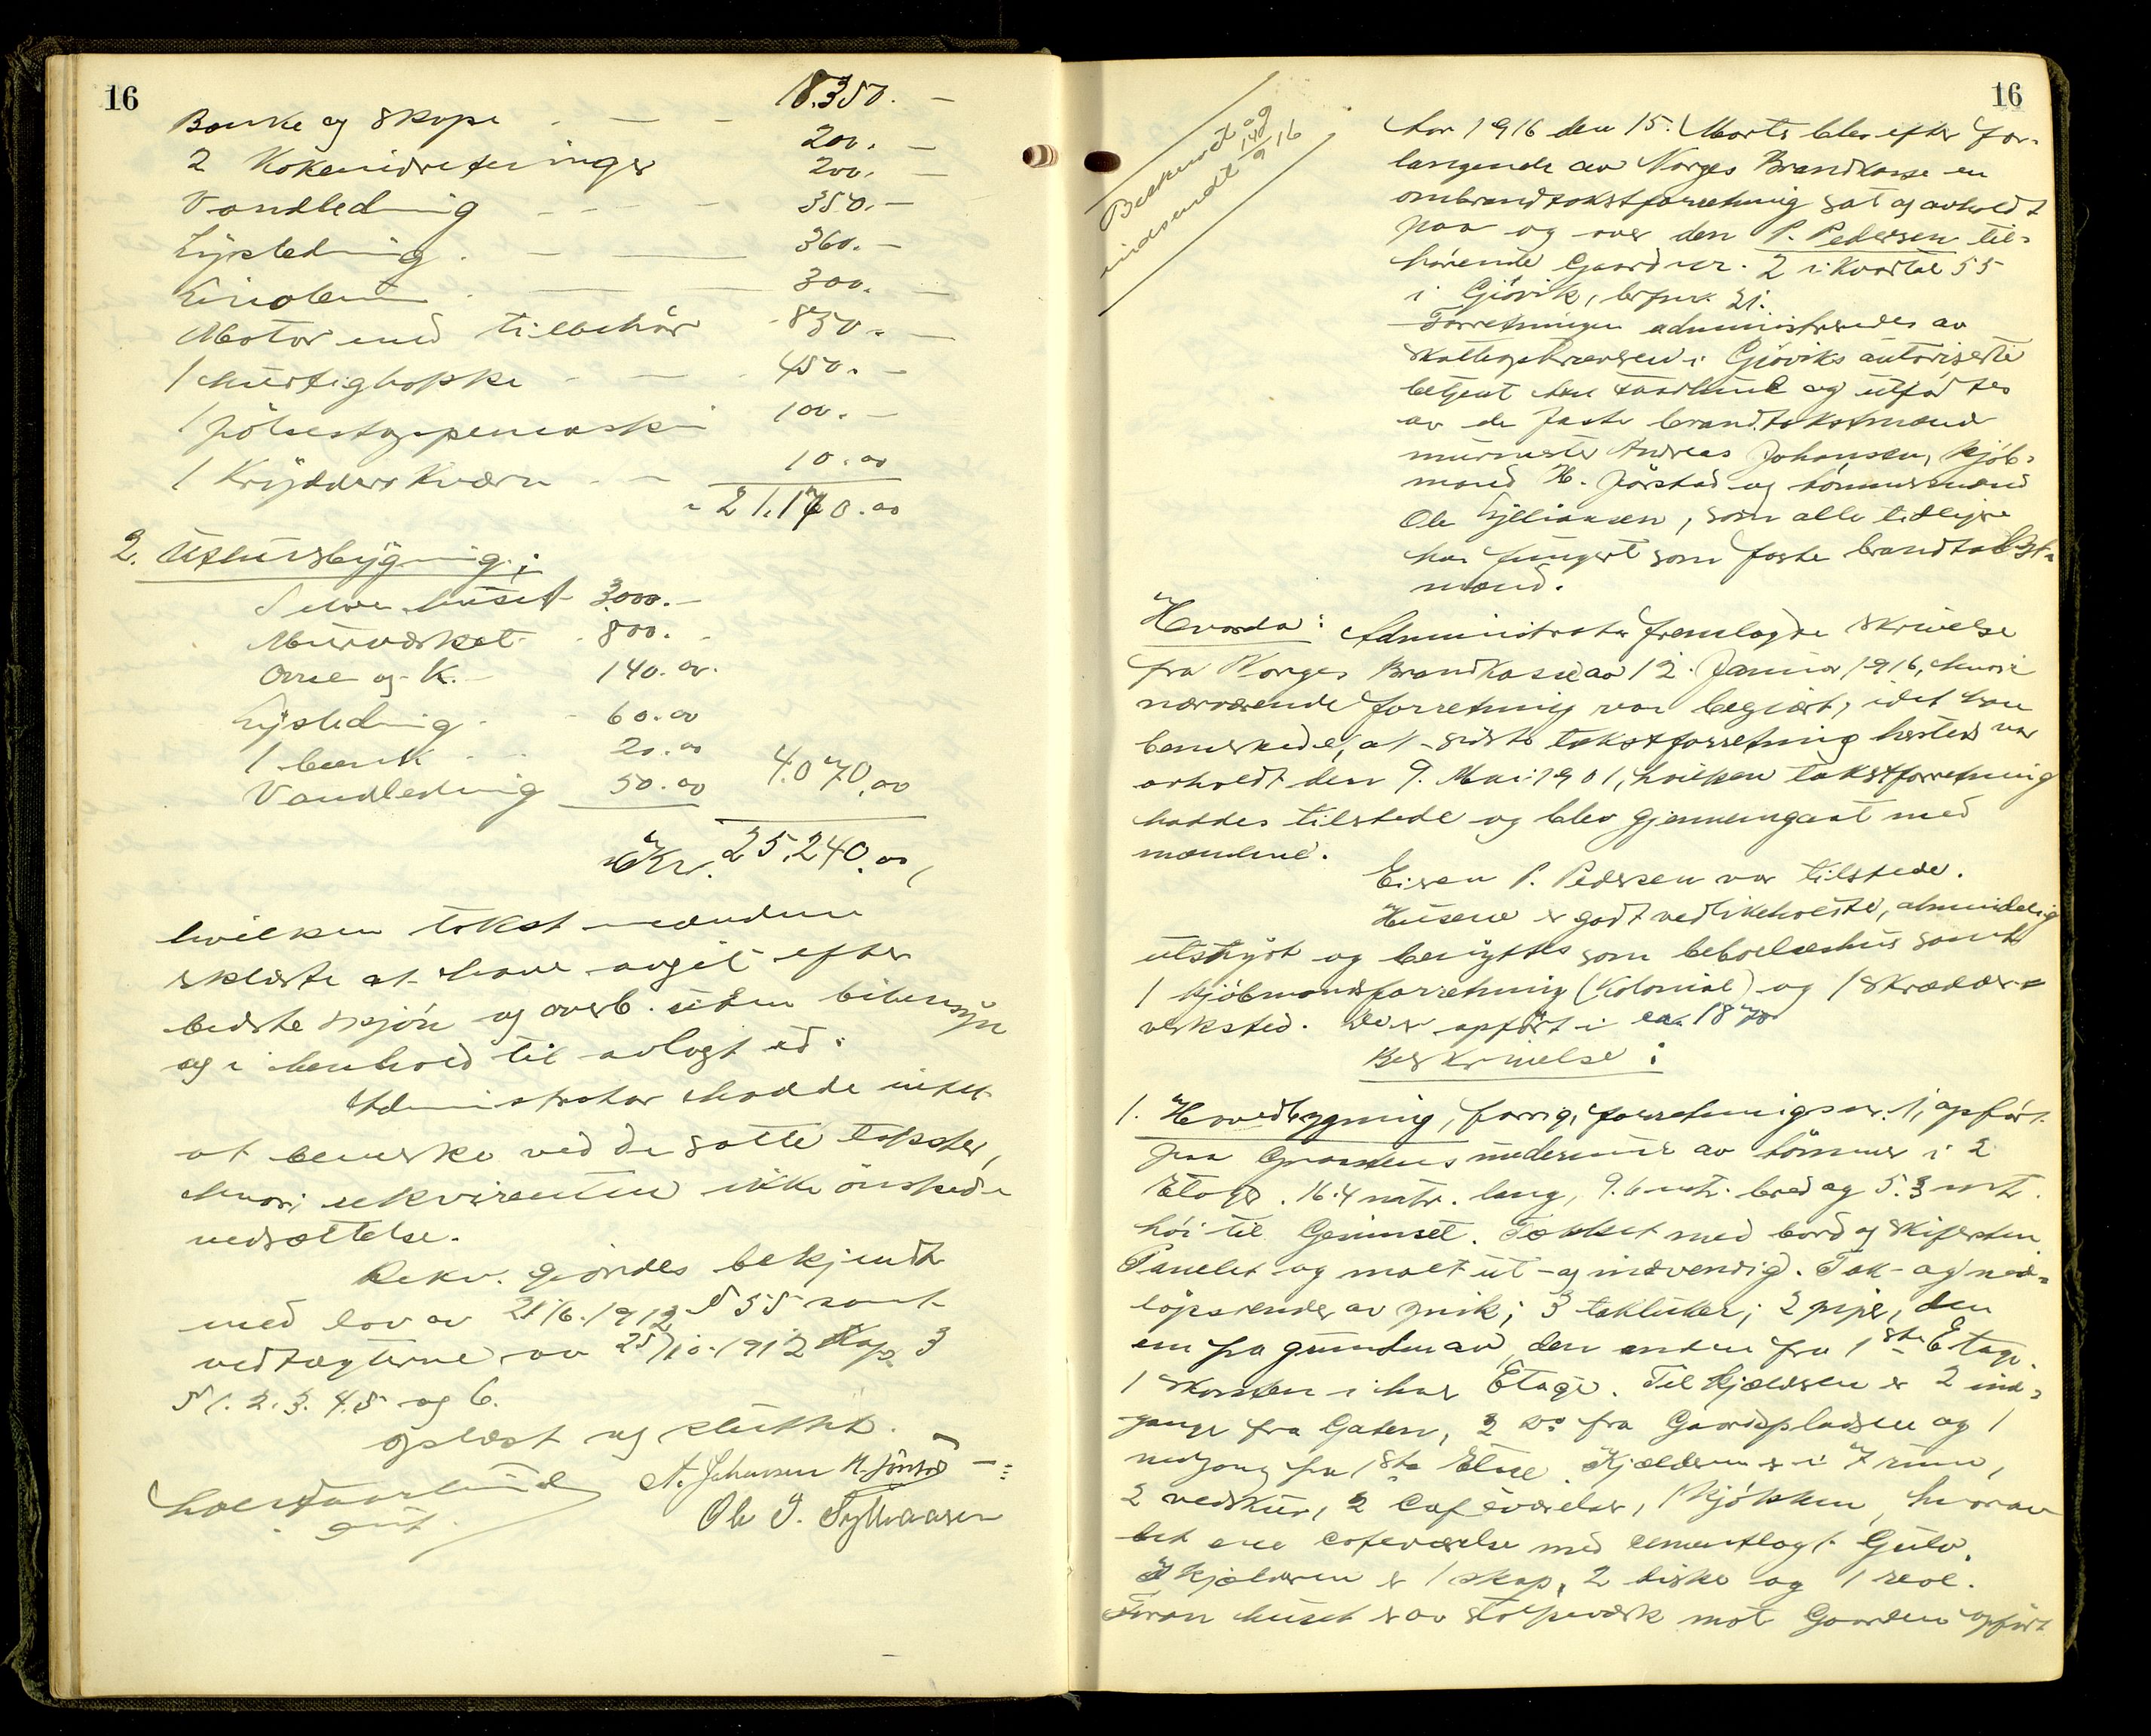 16
18.350. —
Bænke og skape - — - 200. —
2 Kokeindretninger 200. —
Vandledning - - - - 350. —
Lysledning . - — 360. —
Linoleum . — — 300. —
Motor med tilbehör - 850. —
1 hurtighakke - - — - 450. —
1 pölsestoppemaski 100. —
1 Krydderkværn - - 10.00
21.170.00
2. Uthusbygning:
Selve huset 3.000.-
Murværket - 800. -
Ovne og K. - 140.00.
Lysledning - - 60.00
1 bænk - - 20.00
Vandledning 50.00 4.070.00
Kr. 25.240.00,
hvilken takst mændene
erklærte at have avgit efter
bedste skjön og overb. uten bihensyn
og i henhold til avlagt ed.
Administrator hadde intet
at bemerke ved de satte takster,
hvori rekvirenten ikke önskede
nedsættelse.
Rekv. gjordes bekjendt
med lov av 21/6.1912 § 55 samt
vedtægterne av 25/10.1912 Kap. 3
§ 1. 2. 3. 4. 5 og 6.
Oplæst og sluttet.
A. Johansen H. Jörstad
Ole J. Kylliaasen
16
Bekræftet og
indsendt 14/9 16
Aar 1916 den 15. Marts blev efter for-
langende av Norges Brandkasse en
ombrandtakstforretning sat og avholdt
paa og over den P. Pedersen til-
hörende Gaard nr. 2 i Kvartal 55
i Gjövik, brfnr. 21.
Forretningen administreredes av
skatteopkræveren i Gjöviks autoriserte
betjent og utförtes
av de faste brandtakstmænd
murmester Andreas Johansen, kjöb-
mand H. Jörstad og tömmermand
Ole Kylliaasen, som alle tidligere
har fungert som faste brandtakst-
mænd.
Hvorda: Administrator fremlagde skrivelse
fra Norges Brandkasse av 12. Januar 1916, hvori
nærværende forretning var begjært, idet han
bemerkede, at sidste takstforretning hersteds var
avholdt den 9. Mai 1901, hvilken takstforretning
haddes tilstede og blev gjennemgaat med
mændene.
Eieren P. Pedersen var tilstede.
Husene er godt vedlikeholdte, almindelig
utstyrt og benyttes som beboelseshus samt
1 kjöbmandsforretning (Kolonial) og 1 skrædder-
verksted. De er opfört i ca. 1870
Beskrivelse:
1. Hovedbygning, forrige forretnings nr. 1, opfört
paa Graastens undermur av tömmer i 2
Etager. 16.4 mtr. lang, 9.6 mtr. bred og 5.3 mtr.
höi til Gesimset. Tækket med bord og skifersten
Panelet og malt ut- og indvendig. Tak- og ned-
löpsrender av zink; 3 takluker; 2 piper, den
ene fra grunden av, den anden fra 1ste Etage.
1 skorsten i hver Etage. Til Kjælderen er 2 ind-
gange fra Gaten, 2 do fra Gaardspladsen og 1
nedgang fra 1ste Etage. Kjælderen er i 7 rum,
2 vedskur, 2 Caféværelser, 1 kjökken, hvorav
det ene cafeværelse med cementlagt Gulv.
I kjælderen er 1 skap, 2 diske og 1 reol.
Foran huset er av stolpeværk mot Gaarden opfört